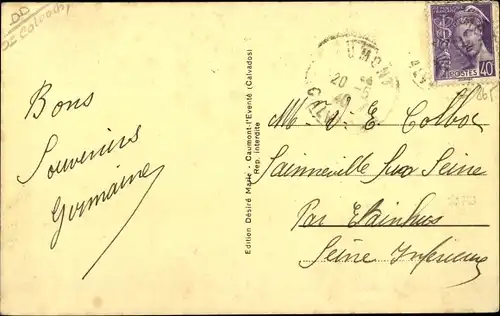 DD
Calvados
Bons
Souvenirs
Germaine
Edition Désiré Marie - Caumont-l'Eventé (Calvados)
Rep. interdite
UMONT
20
40
CALV
POSTES 40
E. Colboc
Sainneville sur Seine
Par Etainhus
Seine Inférieure